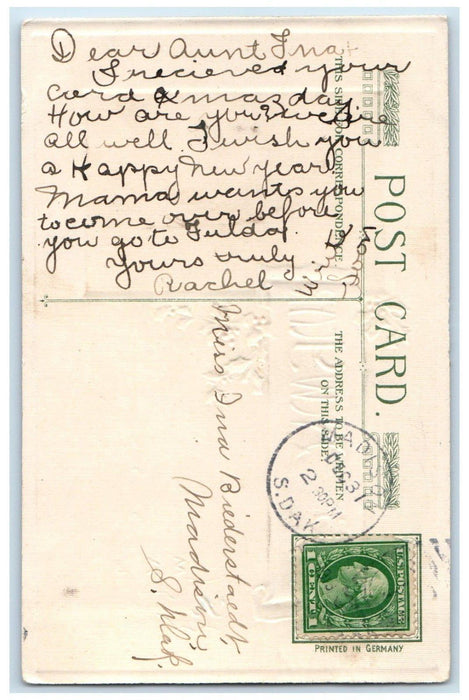 Dear Aunt Ina
I recieved your
card Xmas day
How are you we are
all well I wish you
a Happy New year
Mama wants you
to come over before
you go to Fulda.
Yours truly
Rachel
THIS SIDE FOR CORRESPONDENCE
POST CARD.
THE ADDRESS TO BE WRITTEN
ON THIS SIDE
Miss Ina Biederstaedt
Madison,
S. Dak.
DEC 31
2 30 PM
S. DAK.
U.S. POSTAGE
1 CENT 1
PRINTED IN GERMANY